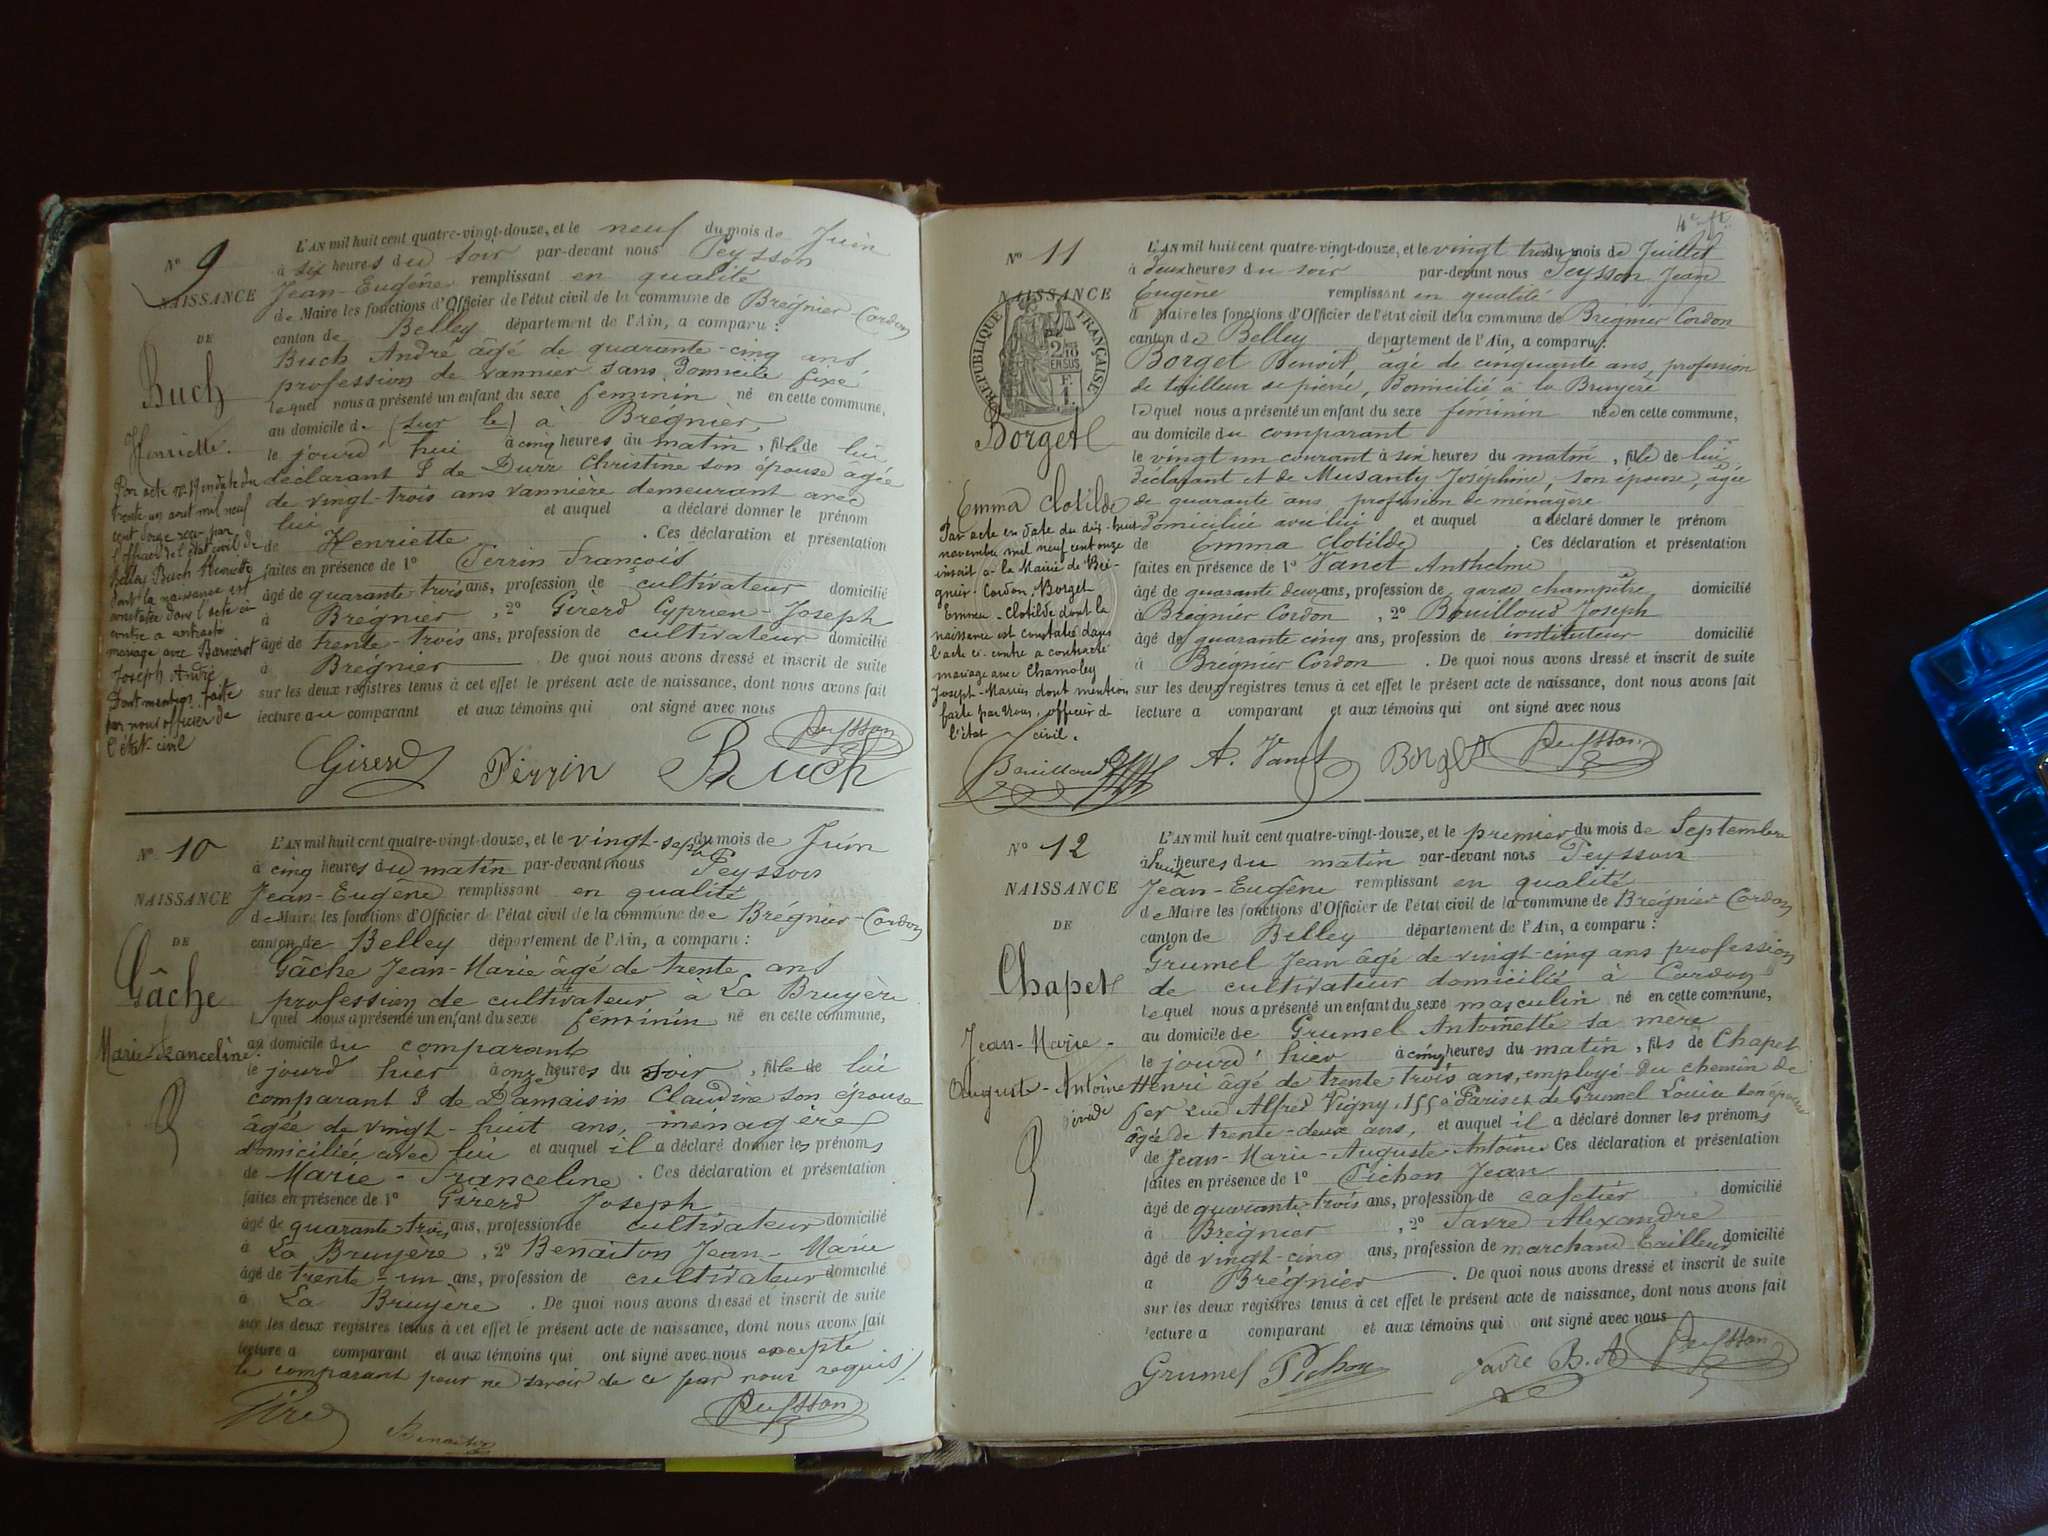 N° 9
NAISSANCE
DE
Buch
Henriette.
Par acte n° 17 en date du
trente un aout mil neuf
cent onze reçu par
l'officier de l'état civil de
Belley Buch Henriette
dont la naissance est
constatée dans l'acte ci
contre a contracté
mariage avec Barnerot
Joseph André
Dont mention faite
par nous officier de
l'état-civil
L'AN mil huit cent quatre-vingt-douze, et le neuf du mois de Juin
à six heures du soir par-devant nous Peysson
Jean-Eugène remplissant en qualité
de Maire les fonctions d'Officier de l'état civil de la commune de Brégnier-Cordon
canton de Belley département de l'Ain, a comparu :
Buch André âgé de quarante-cinq ans
profession de vannier sans domicile fixe
lequel nous a présenté un enfant du sexe féminin né en cette commune,
au domicile de (sur le) à Brégnier,
le jourd'hui à cinq heures du matin, fille de lui
déclarant & de Durr Christine son épouse âgée
de vingt-trois ans vannière demeurant avec
lui et auquel a déclaré donner le prénom
de Henriette. Ces déclaration et présentation
faites en présence de 1° Perrin François
âgé de quarante-trois ans, profession de cultivateur domicilié
à Brégnier, 2° Girerd Cyprien-Joseph
âgé de trente-trois ans, profession de cultivateur domicilié
à Brégnier. De quoi nous avons dressé et inscrit de suite
sur les deux registres tenus à cet effet le présent acte de naissance, dont nous avons fait
lecture au comparant et aux témoins qui ont signé avec nous
Girerd Perrin Buch Peysson
N° 10
NAISSANCE
DE
Gâche
Marie-Franceline.
L'AN mil huit cent quatre-vingt-douze, et le vingt-sept du mois de Juin
à cinq heures du matin par-devant nous Peysson
Jean-Eugène remplissant en qualité
de Maire les fonctions d'Officier de l'état civil de la commune de Brégnier-Cordon
canton de Belley département de l'Ain, a comparu :
Gâche Jean-Marie âgé de trente ans
profession de cultivateur à La Bruyère
lequel nous a présenté un enfant du sexe féminin né en cette commune,
au domicile du comparant
le jourd'hier à onze heures du soir, fille de lui
comparant & de Damaisin Claudine son épouse
âgée de vingt-huit ans, ménagère
domiciliée avec lui et auquel il a déclaré donner les prénoms
de Marie-Franceline. Ces déclaration et présentation
faites en présence de 1° Girerd Joseph
âgé de quarante-trois ans, profession de cultivateur domicilié
à La Bruyère, 2° Benaiton Jean-Marie
âgé de trente-un ans, profession de cultivateur domicilié
à La Bruyère. De quoi nous avons dressé et inscrit de suite
sur les deux registres tenus à cet effet le présent acte de naissance, dont nous avons fait
lecture a comparant et aux témoins qui ont signé avec nous excepté
le comparant pour ne savoir de ce par nous requis.
Benaiton Peysson
4e ft
N° 11
NAISSANCE
RÉPUBLIQUE FRANÇAISE
2/10
EN SUS
Borget
Emma Clotilde
Par acte en date du dix-huit
novembre mil neuf cent onze
inscrit à la Mairie de Bré-
gnier-Cordon, Borget
Emma-Clotilde dont la
naissance est constatée dans
l'acte ci-contre a contracté
mariage avec Chamoley
Joseph-Marius dont mention
faite par nous, officier de
l'état civil.
L'AN mil huit cent quatre-vingt-douze, et le vingt trois du mois de Juillet
à deux heures du soir par-devant nous Peysson Jean
Eugène remplissant en qualité
d Maire les fonctions d'Officier de l'état civil de la commune de Brégnier Cordon
canton de Belley département de l'Ain, a comparu :
Borget Benoît, âgé de cinquante ans, profession
de tailleur de pierre, Domicilié à la Bruyère
lequel nous a présenté un enfant du sexe féminin né en cette commune,
au domicile du comparant
le vingt un courant à six heures du matin, fille de lui
déclarant et de Musanty Joséphine, son épouse, âgée
de quarante ans, profession de ménagère
Domiciliée avec lui et auquel a déclaré donner le prénom
de Emma Clotilde. Ces déclaration et présentation
faites en présence de 1° Vanet Anthelme
âgé de quarante deux ans, profession de garde champêtre domicilié
à Brégnier Cordon, 2° Bouilloud Joseph
âgé de quarante cinq ans, profession de instituteur domicilié
à Brégnier Cordon. De quoi nous avons dressé et inscrit de suite
sur les deux registres tenus à cet effet le présent acte de naissance, dont nous avons fait
lecture a comparant et aux témoins qui ont signé avec nous
Bouilloud A. Vanet Borget Peysson
N° 12
NAISSANCE
DE
Chapet
Jean-Marie-
Auguste-Antoine
L'AN mil huit cent quatre-vingt-douze, et le premier du mois de Septembre
à huit heures du matin par-devant nous Peysson
Jean-Eugène remplissant en qualité
de Maire les fonctions d'Officier de l'état civil de la commune de Brégnier Cordon
canton de Belley département de l'Ain, a comparu :
Grumel Jean âgé de vingt-cinq ans profession
de cultivateur domicilié à Cordon
lequel nous a présenté un enfant du sexe masculin né en cette commune,
au domicile de Grumel Antoinette sa mère
le jourd'hier à cinq heures du matin, fils de Chapet
Henri âgé de trente-trois ans, employé du chemin de
fer rue Alfred Vigny, 155 à Paris et de Grumel Louise son épouse
âgée de trente-deux ans, et auquel il a déclaré donner les prénoms
de Jean-Marie-Auguste-Antoine Ces déclaration et présentation
faites en présence de 1° Pichon Jean
âgé de quarante-trois ans, profession de cafetier domicilié
à Brégnier, 2° Favre Alexandre
âgé de vingt-cinq ans, profession de marchand tailleur domicilié
a Brégnier. De quoi nous avons dressé et inscrit de suite
sur les deux registres tenus à cet effet le présent acte de naissance, dont nous avons fait
lecture a comparant et aux témoins qui ont signé avec nous
Grumel Pichon Favre B. A Peysson